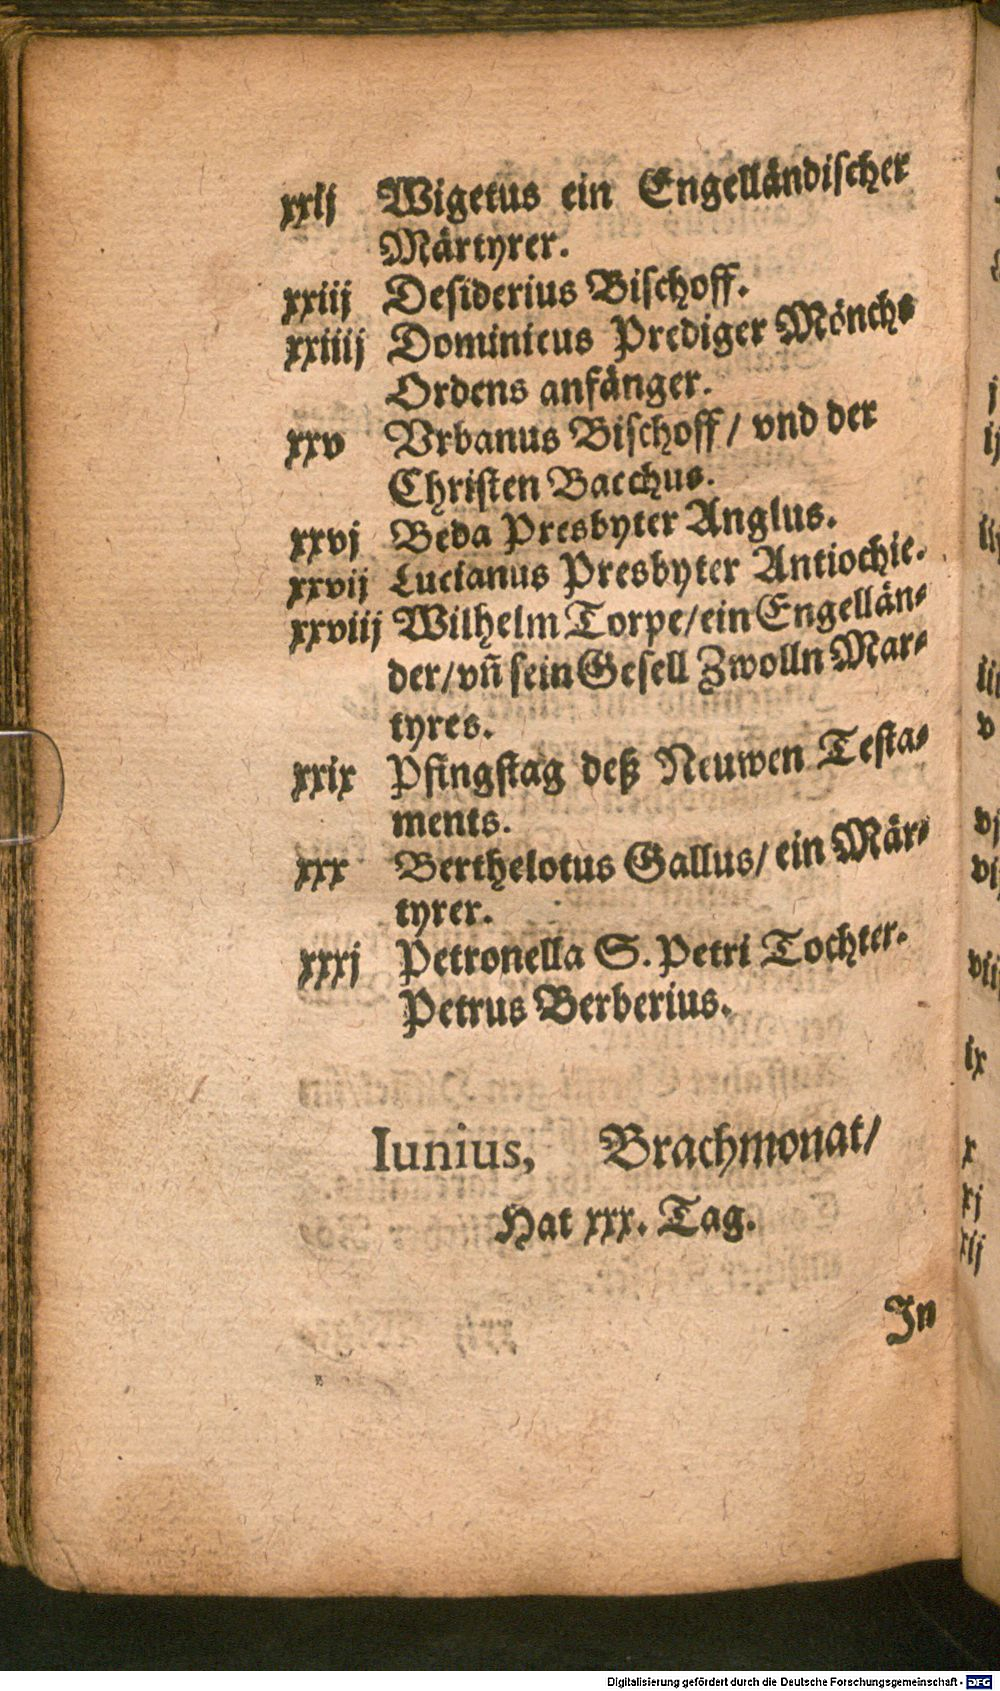 xxij Wigetus ein Engelländischer
Märtyrer.
xxiij Desiderius Bischoff.
xxiiij Dominicus Prediger Mönchs
Ordens anfänger.
xxv Vrbanus Bischoff/ vnd der
Christen Bacchus.
xxvj Beda Presbyter Anglus.
xxvij Lucianus Presbyter Antiochie.
xxviij Wilhelm Torpe/ein Engellän-
der/vñ sein Gesell Zwolln Mar-
tyres.
xxix Pfingstag deß Neuwen Testa-
ments.
xxx Berthelotus Gallus/ ein Mär-
tyrer.
xxxj Petronella S. Petri Tochter.
Petrus Berberius.
Iunius, Brachmonat/
Hat xxx. Tag.
In
j
v
vj
ix
x
xj
xij
Digitalisierung gefördert durch die Deutsche Forschungsgemeinschaft - DFG